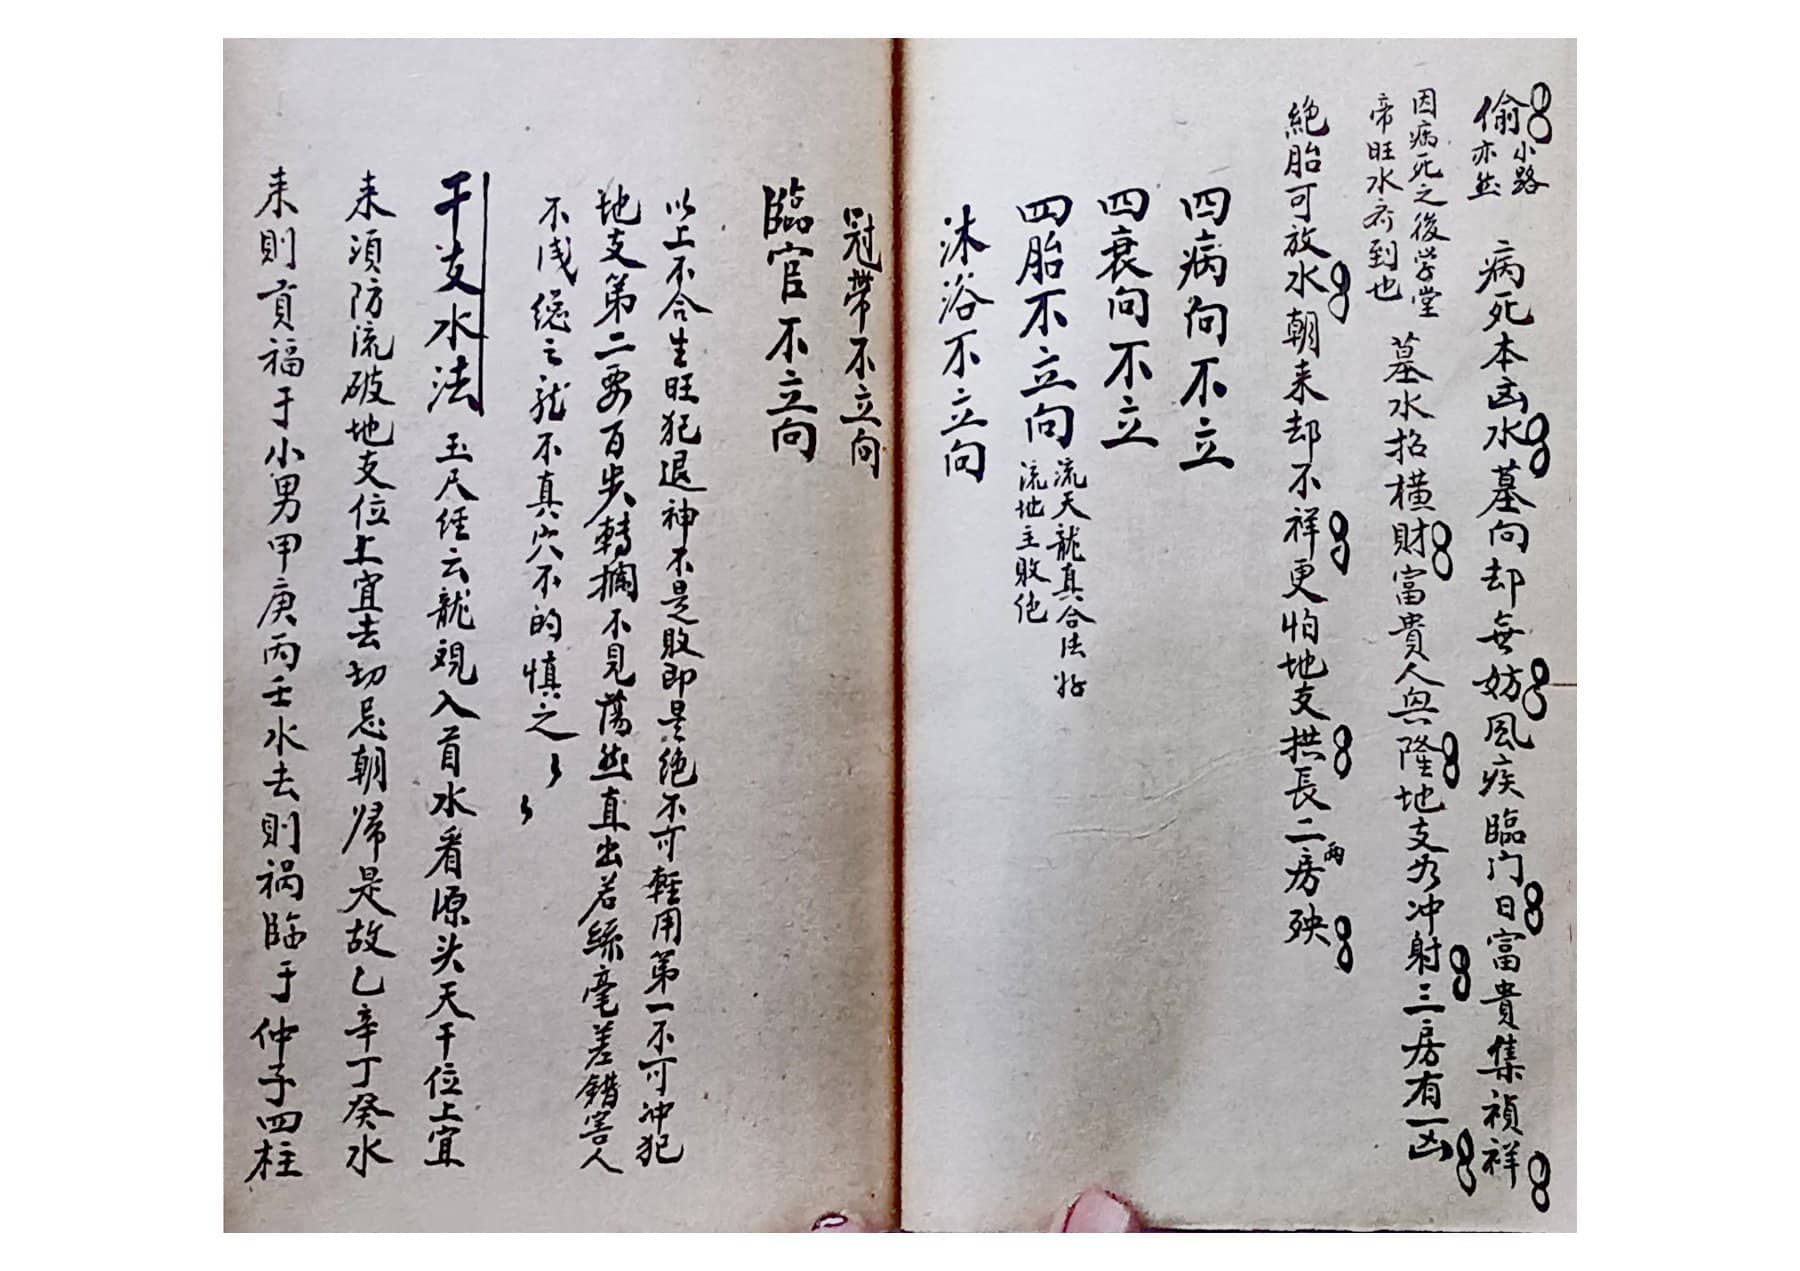 偷小路亦然 病死本凶水墓向却無妨風疾臨门日富貴集禎祥
因病死之後学堂帝旺水齐到也 墓水招横財富貴人興隆地支为冲射三房有一凶
絶胎可放水朝来却不祥更怕地支拱長二两房殃
四病向不立
四衰向不立
四胎不立向 流天龍真合法好流地主败绝
沐浴不立向
冠带不立向
臨官不立向
以上不合生旺犯退神不是敗即是绝不可輕用第一不可冲犯
地支第二要百步轉攔不見蕩然直出若絲毫差錯害人
不浅總之龍不真穴不的慎之
干支水法 玉尺经云龍观入首水看源头天干位上宜
来須防流破地支位上宜去切忌朝帰是故乙辛丁癸水
来則貢福于小男甲庚丙壬水去則祸临于仲子四柱